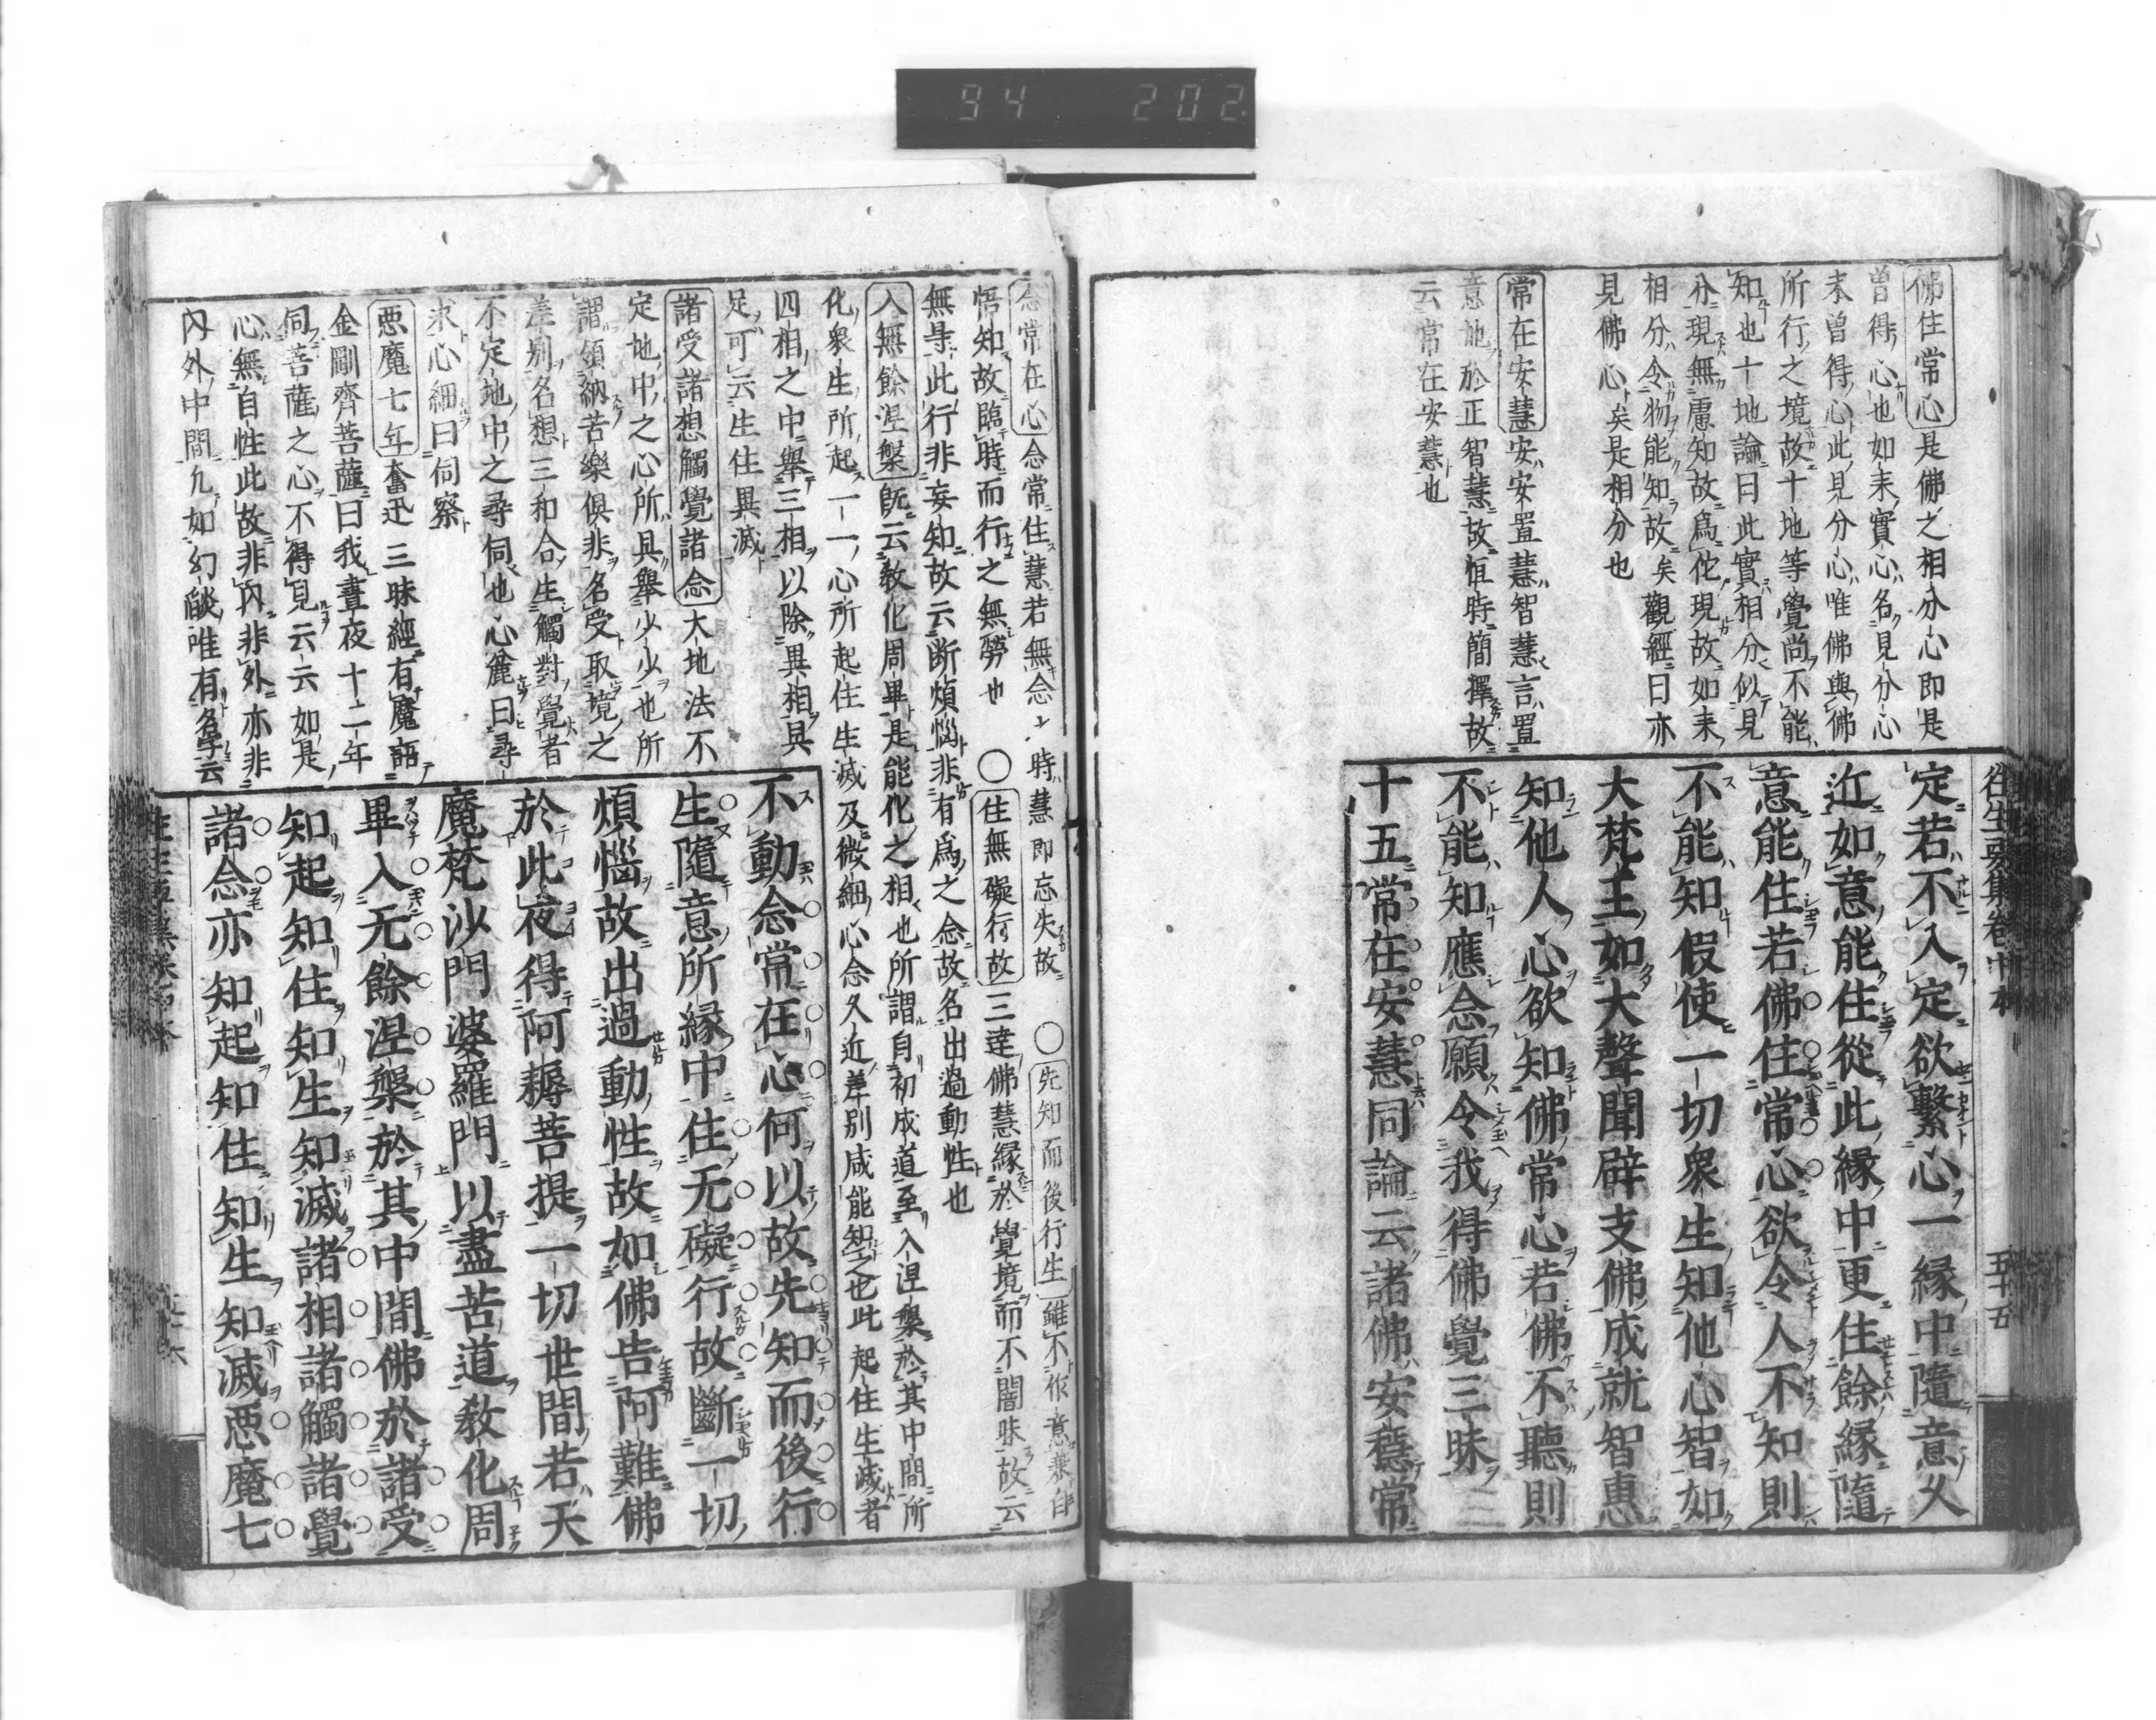 94 202
往生要集卷中本
五十五
佛住常心是佛之相分心即是
曽得心也如来實心名見分心
未曽得心此見分心唯佛與佛
所行之境故十地等覺尚不能
知也十地論曰此實相分似見
分現無慮知故爲佗現故如来
相分令物能知故矣觀經曰亦
見佛心矣是相分也
常在安慧安安置慧智慧言置
意地於正智慧故恒時簡擇故
云常在安慧也
定若不入定欲繫心一縁中隨意久
近如意能住從此縁中更住餘縁隨
意能住若佛住常心欲令人不知則
不能知假使一切衆生知他心智如
大梵王如大聲聞辟支佛成就智恵
知他人心欲知佛常心若佛不聽則
不能知應念願令我得佛覺三昧
十五常在安慧同論云諸佛安穏常
念常在心念常住慧若無念ナ時慧即忘失故 〇先知而後行生雖不作意兼自
悟知故臨時而行之無勞也 〇住無礙行故三達佛慧縁於覺境而不闇昧故云
無㝵此行非妄知故云断煩惱非有爲之念故名出過動性也
入無餘涅槃既云教化周畢是能化之相也所謂自初成道至入涅槃於其中間所
化衆生所起一一心所起住生滅及微細心念久近差別咸能知之也此起住生滅者
四相之中舉三相以除異相具
足可云生住異滅
諸受諸想觸覺諸念大地法不
定地中之心所具舉少少也所
謂領納苦樂倶非名受取境之
差別名想三和合生觸對覺者
不定地中之尋伺也心麁曰尋
求心細曰伺察
悪魔七年奮迅三昧經有魔語
金剛齊菩薩曰我晝夜十二年
伺菩薩之心不得見云云如是
心無自性此故非内非外亦非
内外中間九如幻燄唯有名字云
不動念常在心何以故先知而後行
生隨意所縁中住无礙行故斷一切
煩惱故出過動性故如佛告阿難佛
於此夜得阿耨菩提一切世間若天
魔梵沙門婆羅門以盡苦道教化周
畢入无餘涅槃於其中間佛於諸受
知起知住知生知滅諸相諸觸諸覺
諸念亦知起知住知生知滅悪魔七